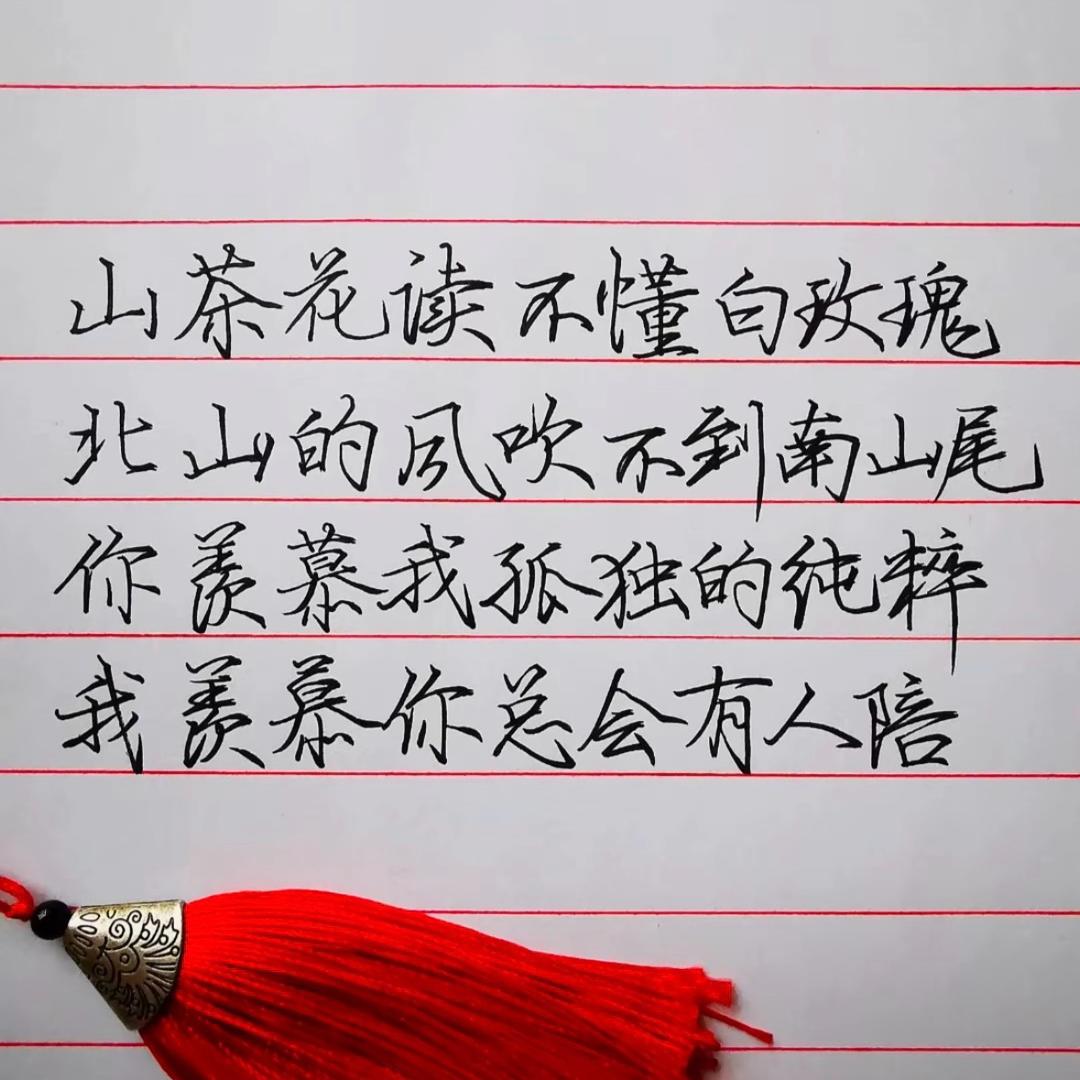 山茶花读不懂白玫瑰
北山的风吹不到南山尾
你羡慕我孤独的纯粹
我羡慕你总会有人陪